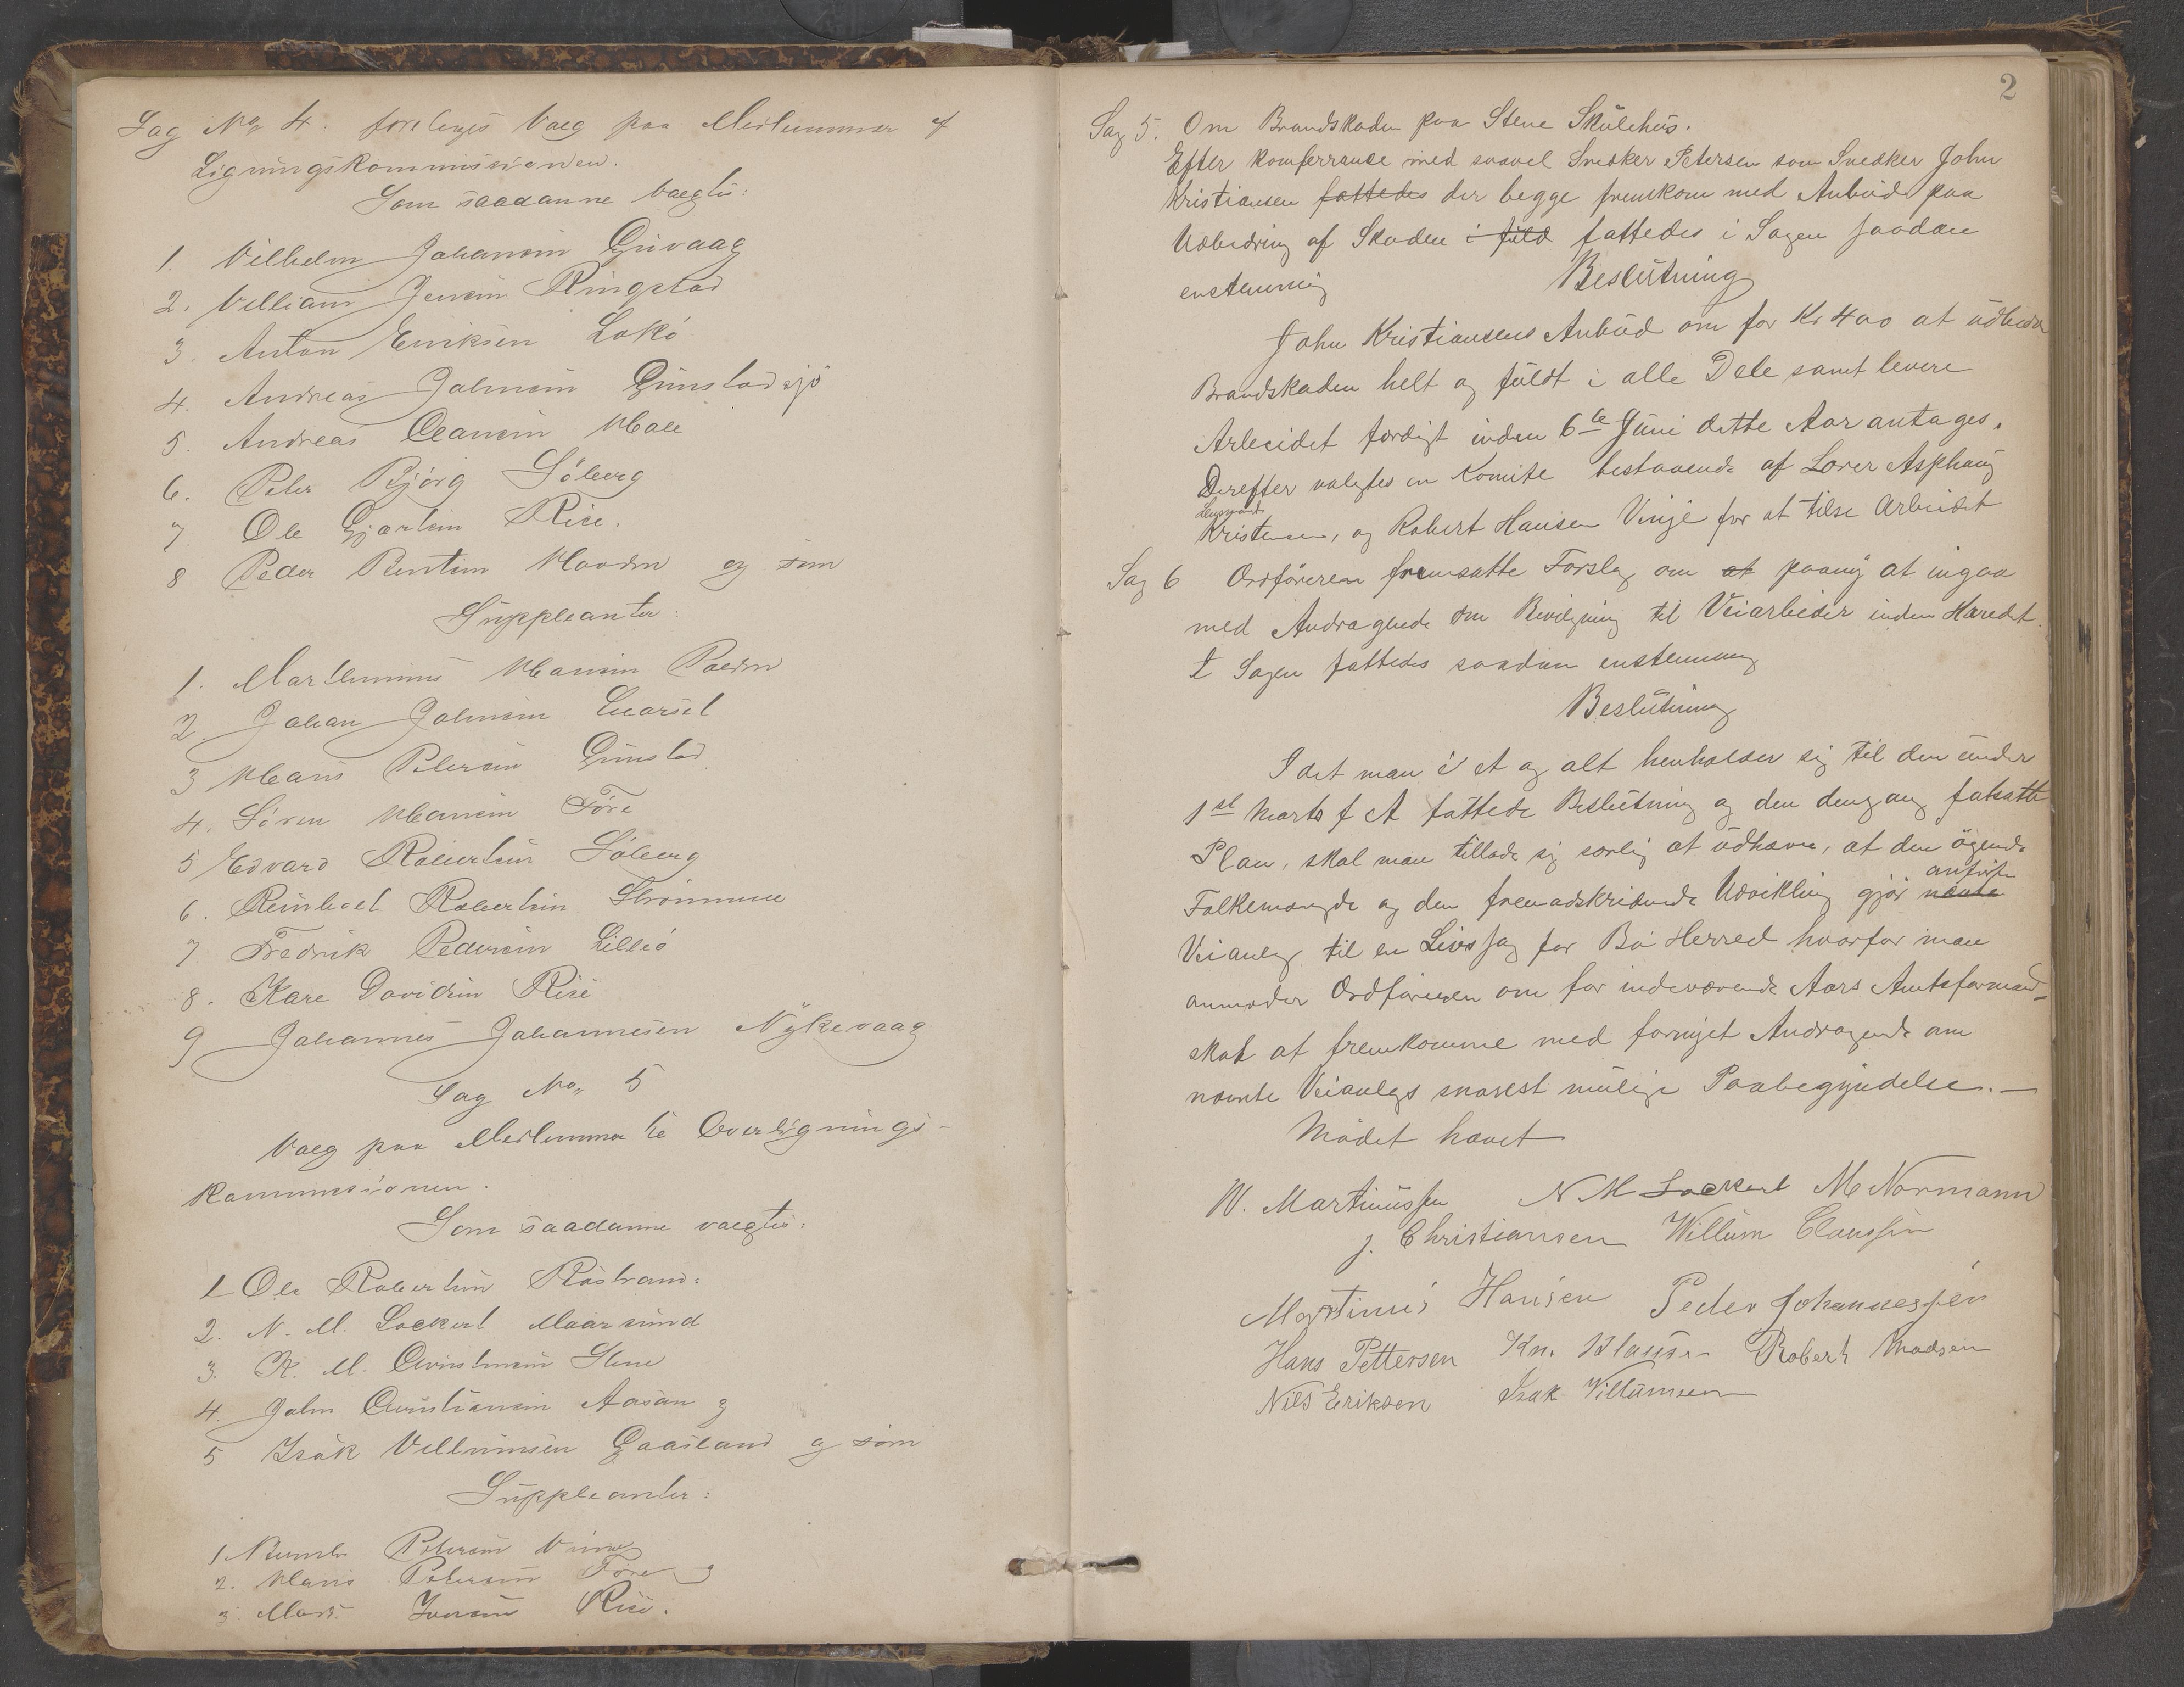 Sag No 4. forelages Valg paa Medlemmer af
Ligningskommissionen.
Som saadanne valgtes:
1. Vilhelm Johansen Guvaag
2. Villiam Jensen Ringstad
3. Anton Eriksen Lokø
4. Andreas Johnsen Gunstadsjø
5. Andreas Hole
6. Peter Bjørg Søberg
7. Ole Rise.
8 Peder Bentsen og som
Suppleanter:
1. Marthinus Hansen
2. Johan Johnsen
3 Hans Petersen Gunstad
4. Søren Hansen Føre
5 Edvard Robertsen Søberg
6. Reinholt Robertsen Strømmen
7. Fredrik Pedersen Lilleø
8. Kare Davidsen Rise
9 Johannes Johannesen Nykevaag
Sag No 5
Valg paa Medlemmer til Overlignings-
kommissionen.
Som saadanne valgtes:
1 Ole Robertsen Røstrand
2. N. M. Lockert Maarsund
3. K. M. Stene
4. John Christiansen Aasan og
5 Isak Villumsen Gaasland og som
Suppleanter:
1 Petersen Vinje
2. Hans Petersen Føre og
3. Mads Iversen Rise.
2
Sag 5. Om Brandskaden paa Stene Skülehüs.
Efter konferrance med saavel Snedker Petersen som Snedker John
Kristiansen fattedes der begge fremkom med Anbüd paa
Udbedring af Skaden i füld fattedes i Sagen saadan
enstemmig Beslütning
John Kristiansens Anbüd om for Kr 400 at üdbedre
Brandskaden helt og füldt i alle Dele samt levere
Arbeidet færdigt inden 6te Jüni dette Aar antages.
Derefter valgtes en Komite bestaaende af Lærer Asphaug
Lensmand
Kristensen, og Robert Hansen Vinje for at tilse Arbeidet
Sag 6 Ordføreren fremsatte Forslag om at paany at ingaa
med Andragende om Bevilgning til Veiarbeider inden Herredet.
I Sagen fattedes saadan enstemmig
Beslütning
I det man i et og alt henholder sig til den ünder
1st Marts f A fattede Beslütning og den dengang fatsatte
Plan, skal man tillade sig særlig at üdhæve, at den øgende
anførte
Folkemængde og den fremadskridende Udvikling gjør nævnte
Veianlæg til en Livssag for Bø Herred hvorfor man
anmoder Ordføreren om for indeværende Aars Amtsformand=
skab at fremkomme med fornyet Andragende om
nævnte Veianlægs snarest mülige Paabegyndelse. —
Mødet hævet
W. Martinüssen N M Lockert M Normann
J. Christiansen Willum Claussen
Martinus Hansen Peder Johannessen
Hans Pettersen Kn. Klausen Robert Madsen
Nils Eriksen Isak Villümsen